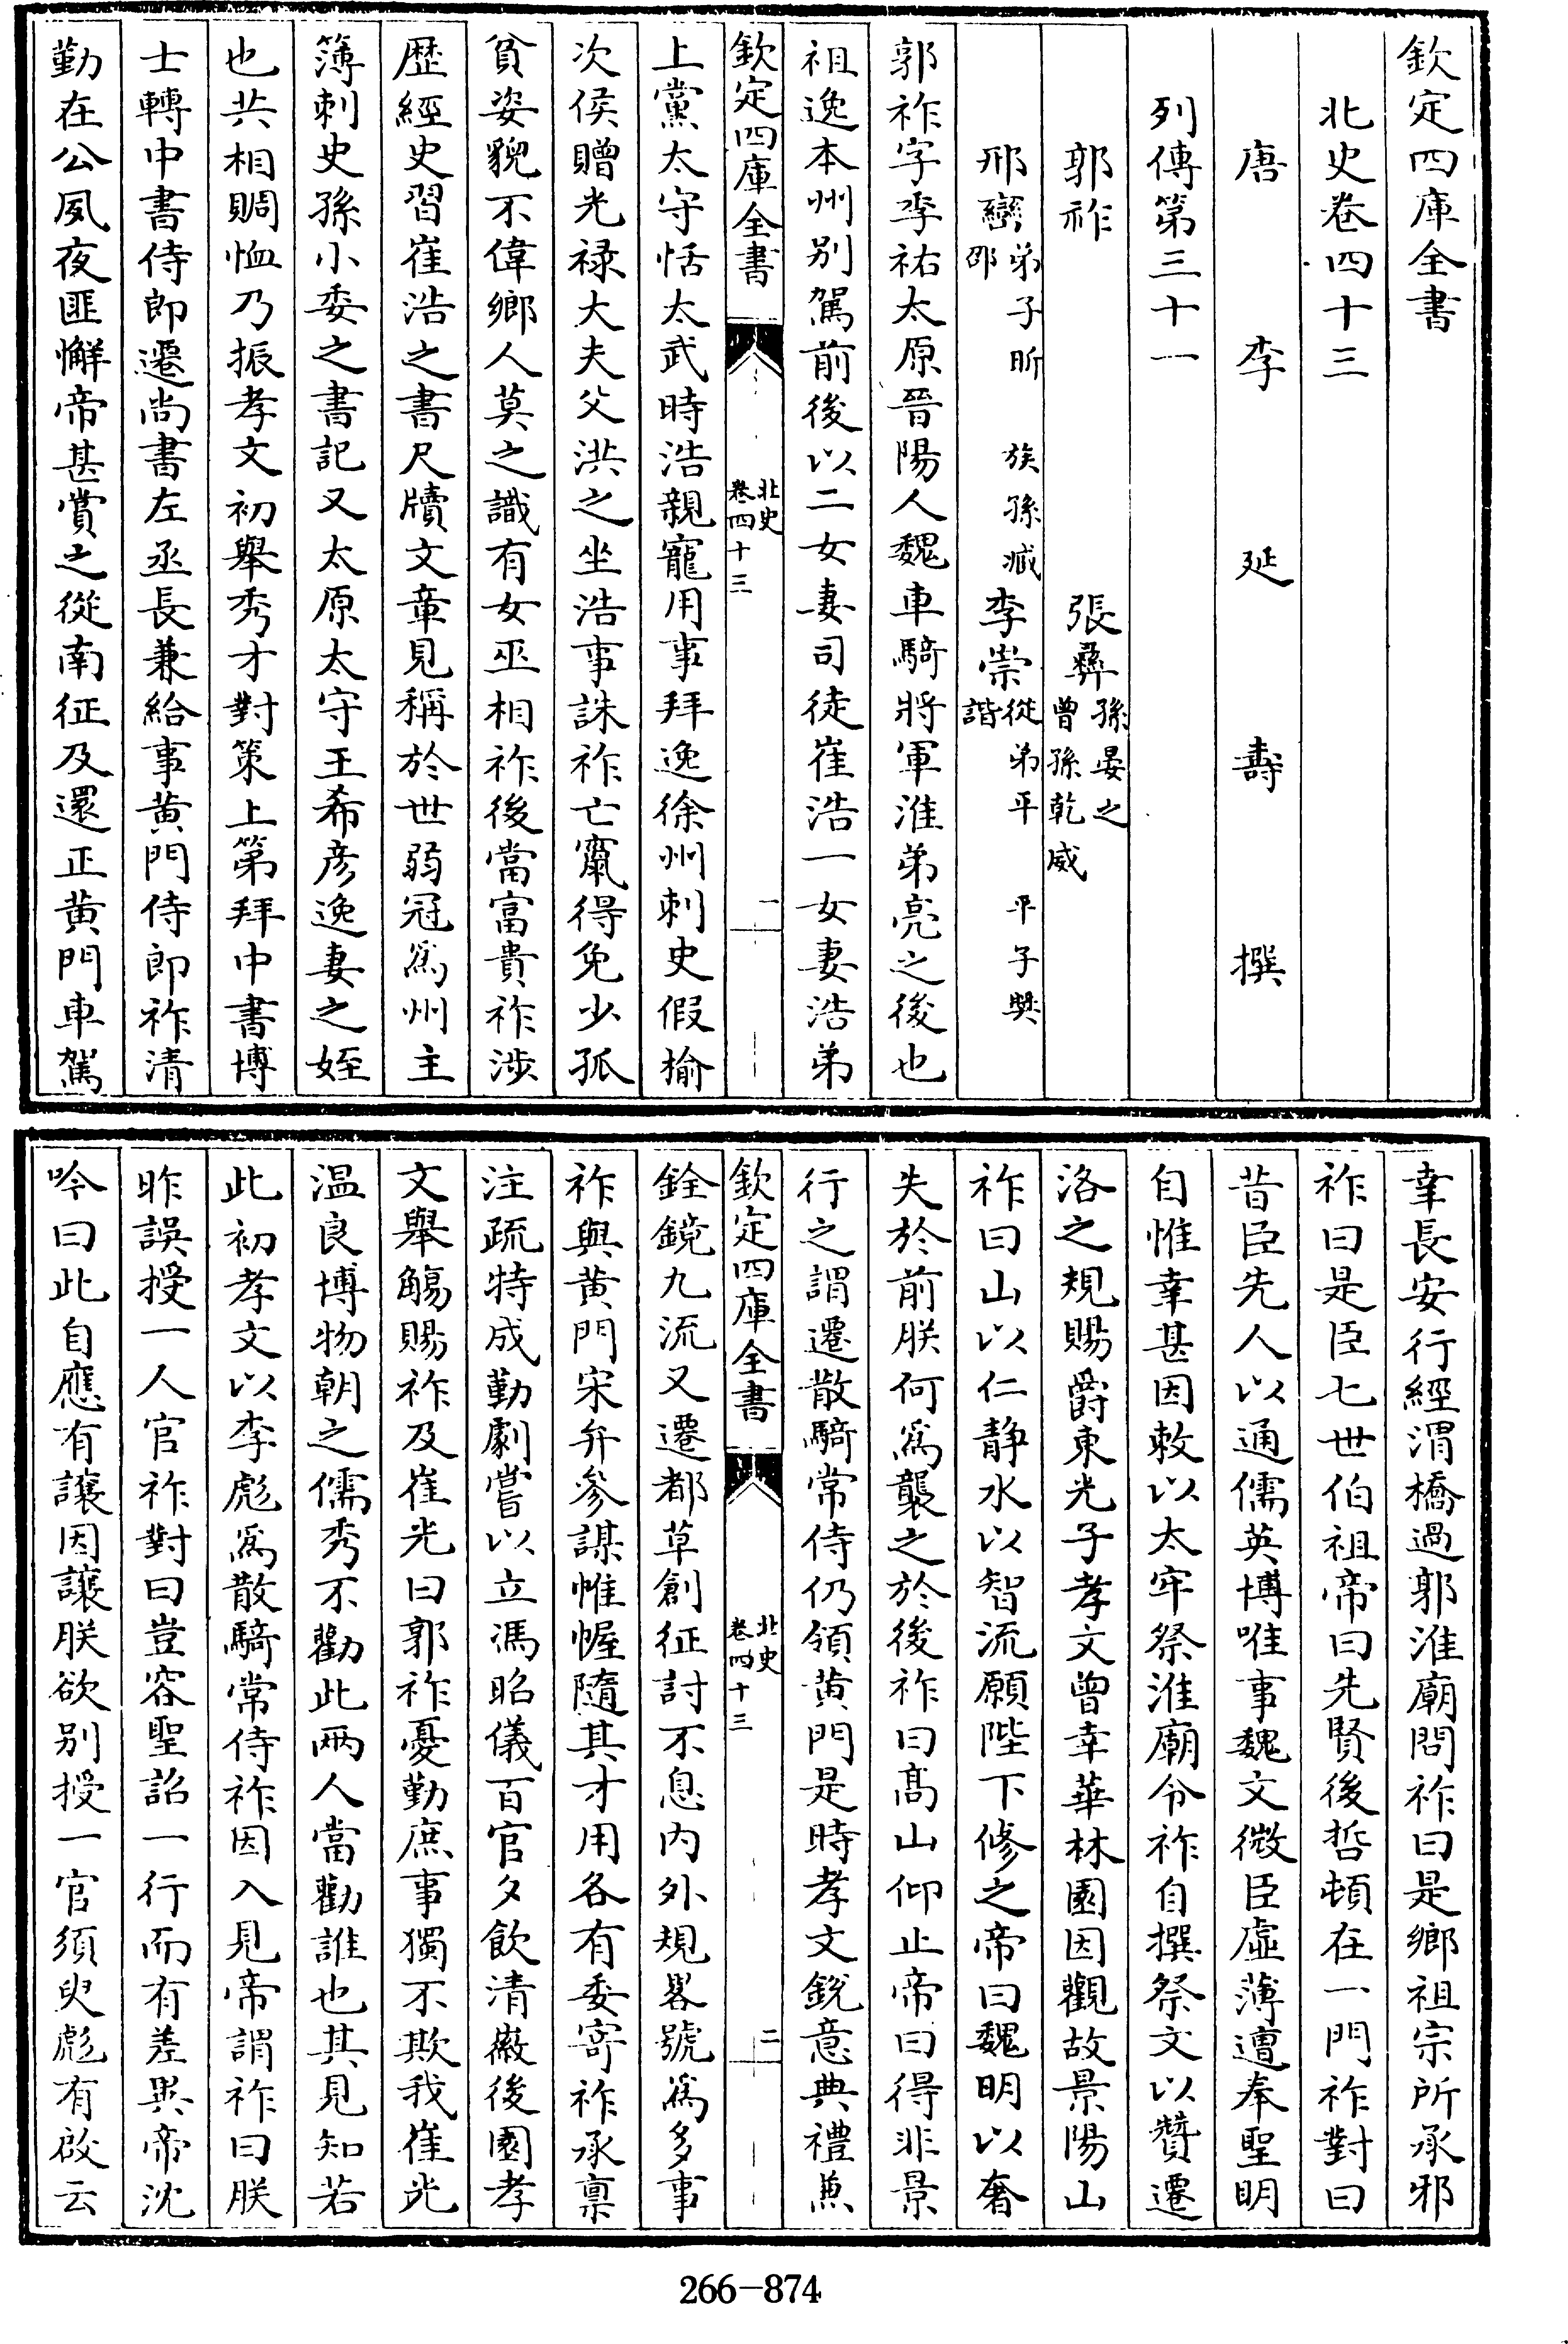 欽定四庫全書
北史卷四十三
唐李延壽撰
列傳第三十一
郭祚　張彝孫晏之曾孫乾威
邢巒弟子昕　族孫臧邵　李崇從弟平　平子奬諧
郭祚字季祐太原晉陽人魏車騎將軍淮弟亮之後也
祖逸本州别駕前後以二女妻司徒崔浩一女妻浩弟
欽定四庫全書　北史卷四十三　一
上黨太守恬太武時浩親寵用事拜逸徐州刺史假榆
次侯贈光禄大夫父洪之坐浩事誅祚亡竄得免少孤
貧姿貌不偉鄉人莫之識有女巫相祚後當富貴祚涉
歴經史習崔浩之書尺牘文章見稱於世弱冠爲州主
簿刺史孫小委之書記又太原太守王希彦逸妻之姪
也共相賙恤乃振孝文初舉秀才對策上第拜中書博
士轉中書侍郎遷尚書左丞長兼給事黄門侍郎祚清
勤在公夙夜匪懈帝甚賞之從南征及還正黄門車駕
幸長安行經渭橋過郭淮廟問祚曰是鄉祖宗所承邪
祚曰是臣七世伯祖帝曰先賢後哲頓在一門祚對曰
昔臣先人以通儒英博唯事魏文微臣虚薄遭奉聖明
自惟幸甚因敕以太牢祭淮廟令祚自撰祭文以贊遷
洛之規賜爵東光子孝文曾幸華林園因觀故景陽山
祚曰山以仁静水以智流願陛下修之帝曰魏明以奢
失於前朕何爲襲之於後祚曰髙山仰止帝曰得非景
行之謂遷散騎常侍仍領黄門是時孝文銳意典禮兼
欽定四庫全書　北史卷四十三　二
銓鏡九流又遷都草創征討不息内外規畧號爲多事
祚與黄門宋弁參謀帷幄隨其才用各有委寄祚承稟
注疏特成勤劇嘗以立馮昭儀百官夕飲清徽後園孝
文舉觴賜祚及崔光曰郭祚憂勤庶事獨不欺我崔光
温良博物朝之儒秀不勸此兩人當勸誰也其見知若
此初孝文以李彪爲散騎常侍祚因入見帝謂祚曰朕
昨誤授一人官祚對曰豈容聖詔一行而有差異帝沈
吟曰此自應有讓因讓朕欲别授一官須臾彪有啟云
266-874